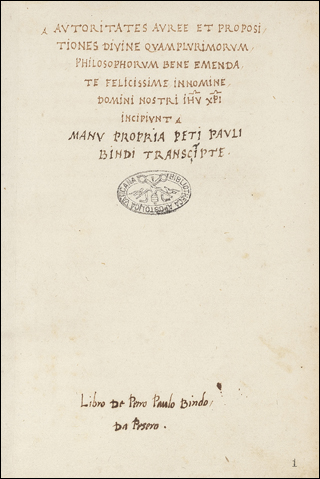 AVTORITATES AVREE ET PROPOSI
TIONES DIVINE QVAMPLVRIMORVM
PHILOSOPHORVM BENE EMENDA
TE FELICISSIME INNOMINE
DOMINI NOSTRI IHV XPI
INCIPIVNT
MANV PROPRIA PETI PAVLI
BINDI TRANSCPTE.
BIBLIOTECA APOSTOLICA VATICANA
Libro De Piero Paulo Bindo
Da Pesero.
1